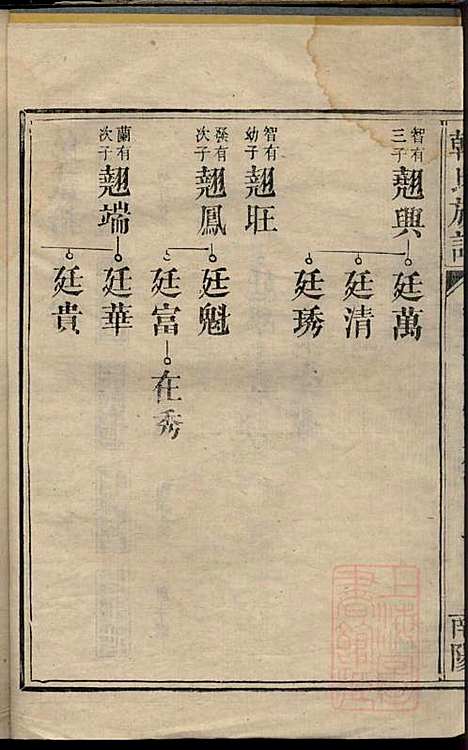 韓氏族譜
南陽
智有三子
翹興
廷萬
廷清
廷琇
智有幼子
翹旺
有次子
翹鳳
廷魁
廷富
在秀
蘭有次子
翹端
廷華
廷貴